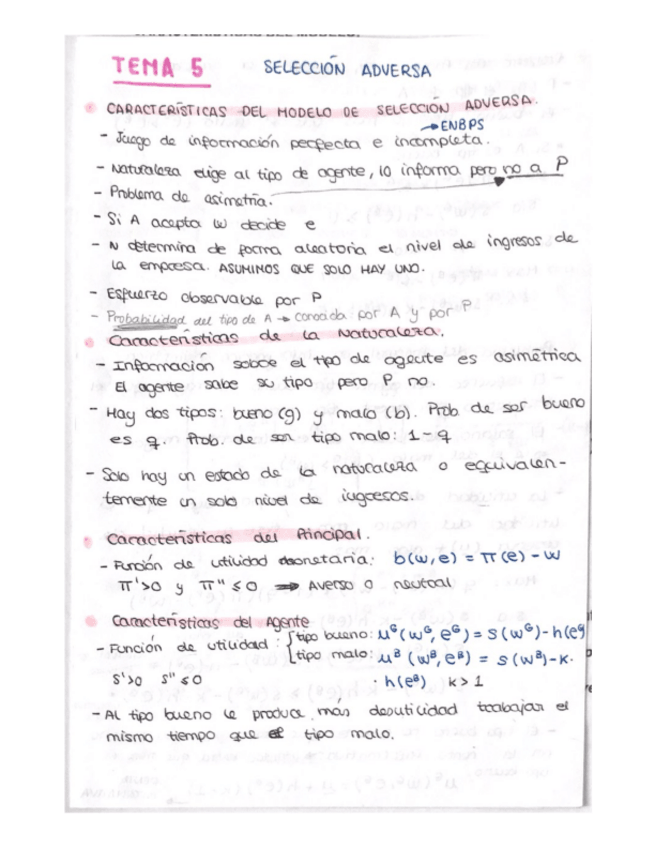 TEMA 5 SELECCIÓN ADVERSA
CARACTERÍSTICAS DEL MODELO DE SELECCIÓN ADVERSA.
→ ENBPS
- Juego de información perfecta e incompleta.
- Naturaleza elige al tipo de agente, lo informa pero no a P
- Problema de asimetría.
- Si A acepta w decide e
- N determina de forma aleatoria el nivel de ingresos de
la empresa. ASUMIMOS QUE SOLO HAY UNO.
- Esfuerzo observable por P
- Probabilidad del tipo de A → conocida por A y por P.
Características de la Naturaleza.
- Información sobre el tipo de agente es asimétrica
El agente sabe su tipo pero P no.
- Hay dos tipos: bueno (g) y malo (b). Prob. de ser bueno
es q. Prob. de ser tipo malo: 1-q
- Solo hay un estado de la naturaleza o equivalen-
temente un solo nivel de ingresos.
Características del Principal.
- Función de utilidad : b(w,e) = π(e) - w
π'>0 y π''≤0 ⇒ Averso o neutral
Características del Agente
- Función de utilidad : { tipo bueno: u^G (w^G, e^G) = s(w^G) - h(e^G
tipo malo: u^B (w^B, e^B) = s(w^B) - k.
s'>0 s''≤0 · h(e^B) k>1
- Al tipo bueno le produce más desutilidad trabajar el
mismo tiempo que el tipo malo.